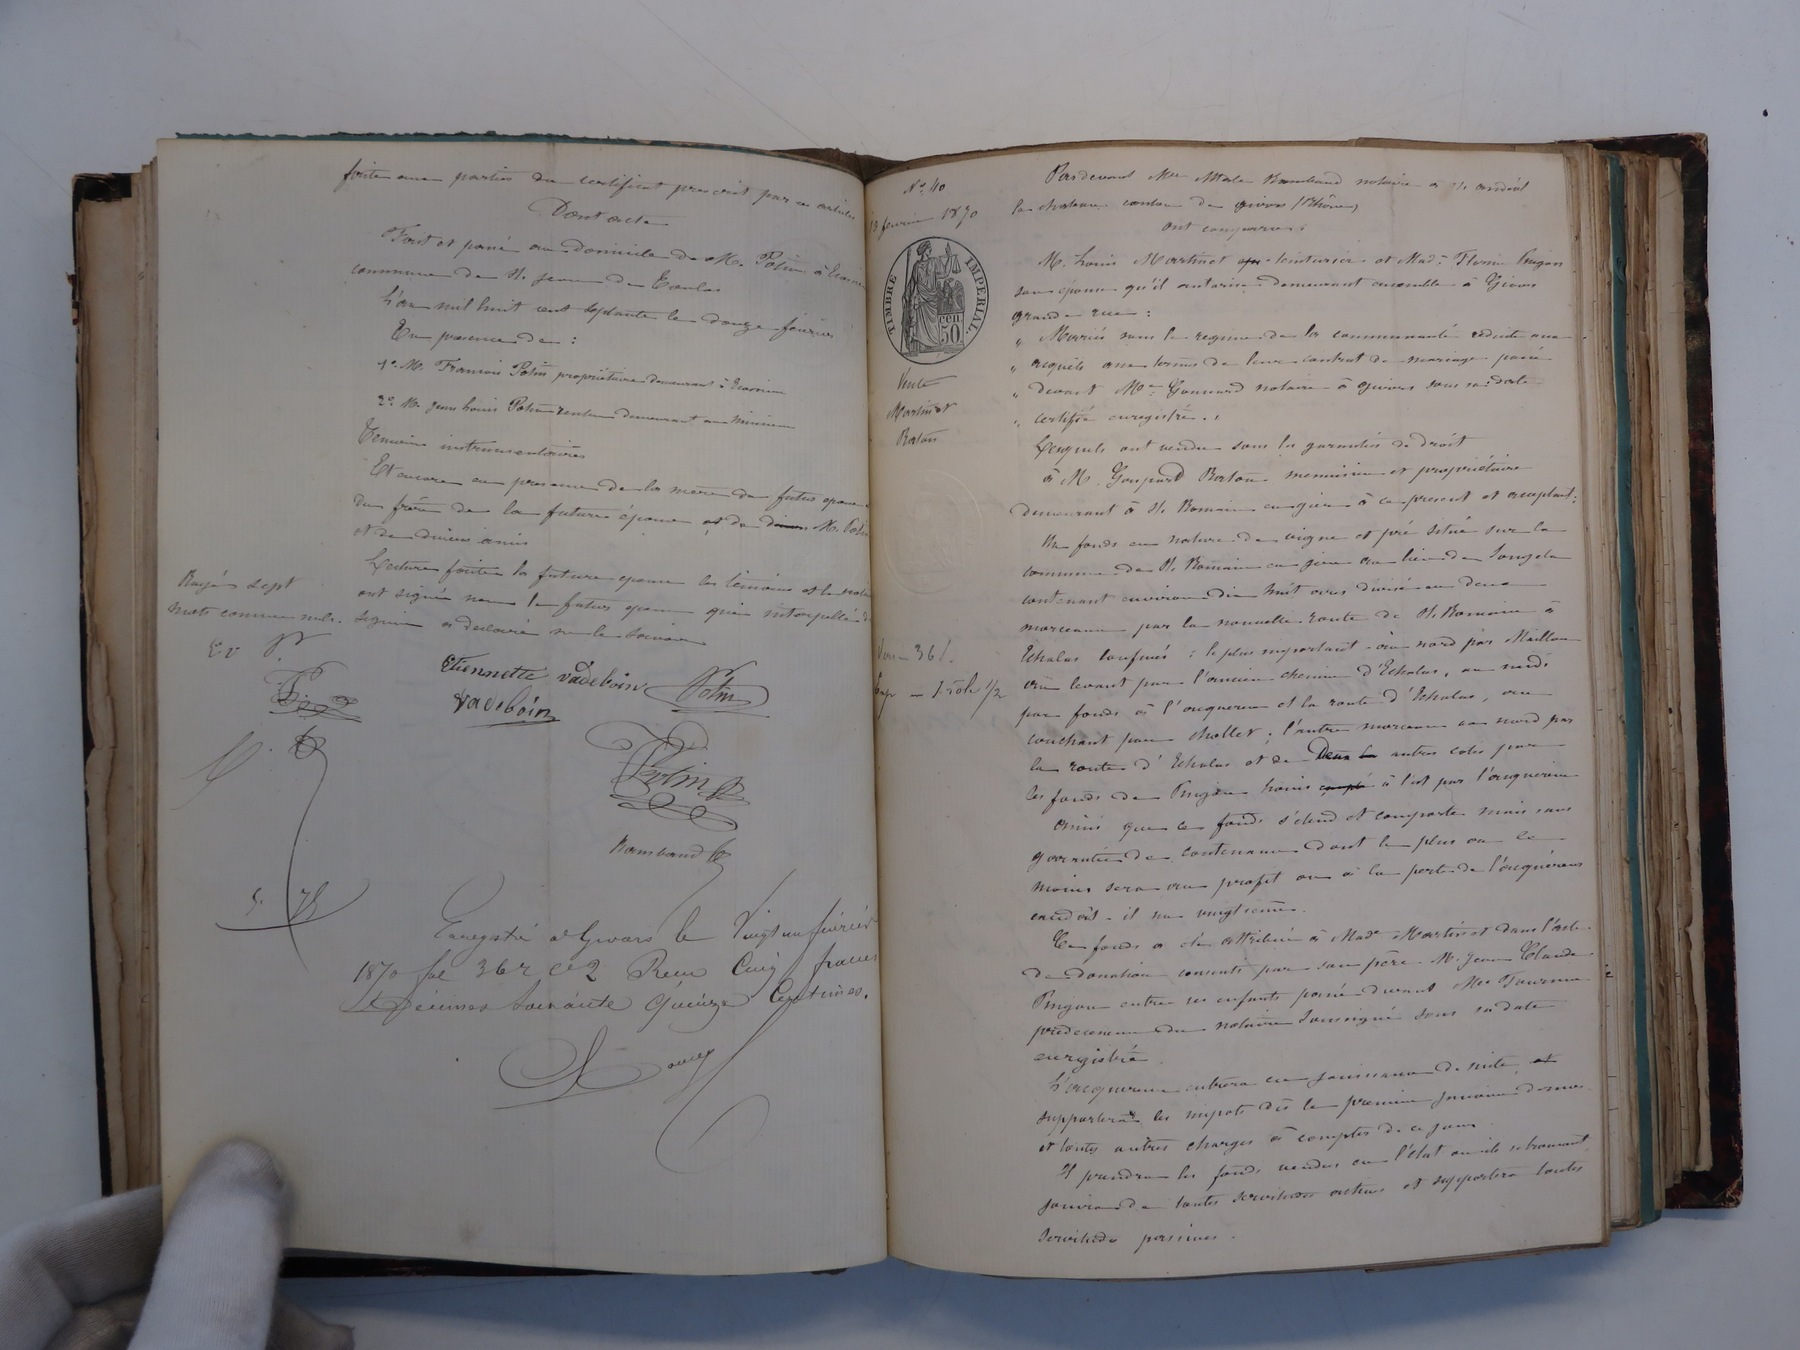 faite aux parties du certificat prescrit par ces articles
Dont acte
Fait et passé au domicile de M. Potin à
commune de St. Jean de Toulas
L'an mil huit cent septante le douze février
En presence de :
1º. M. François Potin propriétaire demeurant à
2º. M. Jean Louis Potin rentier demeurant au
Temoins instrumentaires
Et encore en presence de la mere du futur epoux
du frère de la future épouse et de divers M. Potin
et de divers amis
Lecture faite la future epouse les témoins et le notaire
ont signé non le futur epoux qui interpellé de
signer a declaré ne le savoir
Rayé sept
mots comme nuls.
E v P
Etiennette vadeboin Potin
vadeboin
Potin
Rambaud
Enregistré à Givors le Vingt un février
1870 fol 36 r ce 2 Reçu Cinq francs
Décimes soixante Quinze Centimes.
Nº. 40
13 fevrier 1870
TIMBRE IMPERIAL.
50 cen
Vente
Martinet
Berton
Exp — 1 rôle 1/2
Pardevant Me Rambaud notaire à St. andéol
le chateau canton de givors (Rhône)
ont comparu :
M. Louis Martinet teinturier et Made. Pingon
son épouse qu'il autorise demeurant ensemble à Givors
grande rue :
„ Mariés sous le regime de la communauté reduite aux
„ acquêts aux termes de leur contrat de mariage passé
„ devant Me. notaire à givors sous sa date
„ certifié enregistré. „
Lesquels ont vendu sous les garanties de droit
à M. Gaspard Berton menuisier et propriétaire
demeurant à St. Romain en gier à ce present et acceptant :
Un fonds en nature de vigne et pré situé sur la
commune de St. Romain en gier au lieu de
contenant environ dix huit ares divisé en deux
morceaux par la nouvelle route de St. Romain à
Echalas confinés : le plus important au nord par
au levant par l'ancien chemin d'Echalas, au midi
par fonds à l'acquereur et la route d'Echalas, au
couchant par chollet ; l'autre morceau au nord par
la route d'Echalas et de Deux la autres cotés par
les fonds de Pingon Louis à l'est par l'acquereur
Ainsi que ce fonds s'etend et comporte mais sans
garantie de contenance dont le plus ou le
moins sera au profit ou à la perte de l'acquéreur
excedât-il un vingtieme.
Ce fonds a été attribué à Made Martinet dans l'acte
de donation consenti par son père M. Jean Claude
Pingon entre ses enfants passé devant Me
predecesseur du notaire soussigné sous sa date
enregistré.
L'acquereur entrera en jouissance de suite, et
supportera les impots dès le premier janvier
et toutes autres charges à compter de ce jour
Il prendra les fonds vendus en l'état où ils se trouvent
jouira de toutes servitudes actives et supportera toutes
servitudes passives.